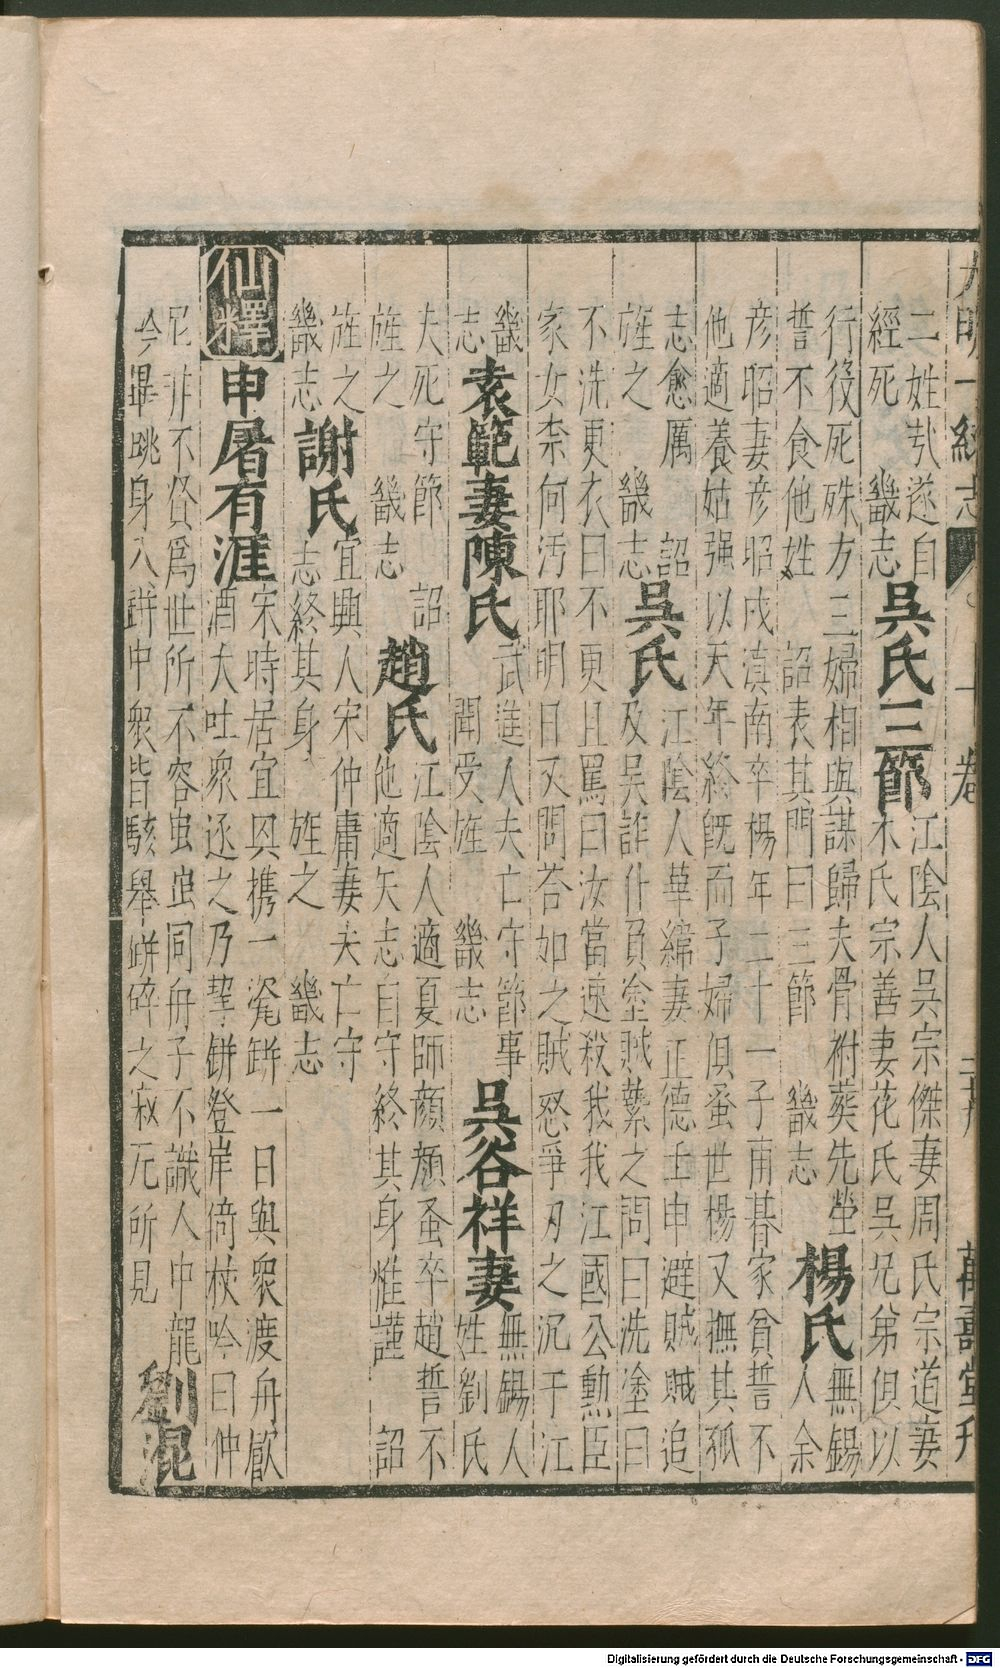 大明一統志 卷 十 萬壽堂刊
二姓哉遂自
經死 畿志
吳氏三節
江陰人吳宗傑妻周氏宗道妻
木氏宗善妻花氏吳兄弟俱以
行役死殊方三婦相與謀歸夫骨祔葬先塋
誓不食他姓 詔表其門曰三節 畿志
楊氏
無錫
人余
彦昭妻彦昭戍滇南卒楊年二十一子甫暮家貧誓不
他適養姑強以天年終旣而子婦俱蚤世楊又撫其孤
志愈厲 詔
旌之 畿志
吳氏
江陰人華緯妻正德壬申避賊賊追
及吳詐仆負塗賊縶之問曰洗塗曰
不洗更衣曰不更且罵曰汝當速殺我我江國公勳臣
家女柰何汚耶明日又問荅如之賊怒爭刃之沉于江
畿
志
袁範妻陳氏
武進人夫亡守節事
聞受旌 畿志
吳谷祥妻
無錫人
姓劉氏
夫死守節 詔
旌之 畿志
趙氏
江陰人適夏師顔顔蚤卒趙誓不
他適矢志自守終其身惟謹 詔
旌之
畿志
謝氏
宜興人宋仲庸妻夫亡守
志終其身 旌之 畿志
仙釋
申屠有涯
宋時居宜興携一瓷缾一日與衆渡舟飮
酒大吐衆逐之乃挈缾登岸倚杖吟曰仲
尼非不賢爲世所不容虫虫同舟子不識人中龍
今畢跳身入缾中衆皆駭舉缾碎之寂无所見
劉混
Digitalisierung gefördert durch die Deutsche Forschungsgemeinschaft - DFG